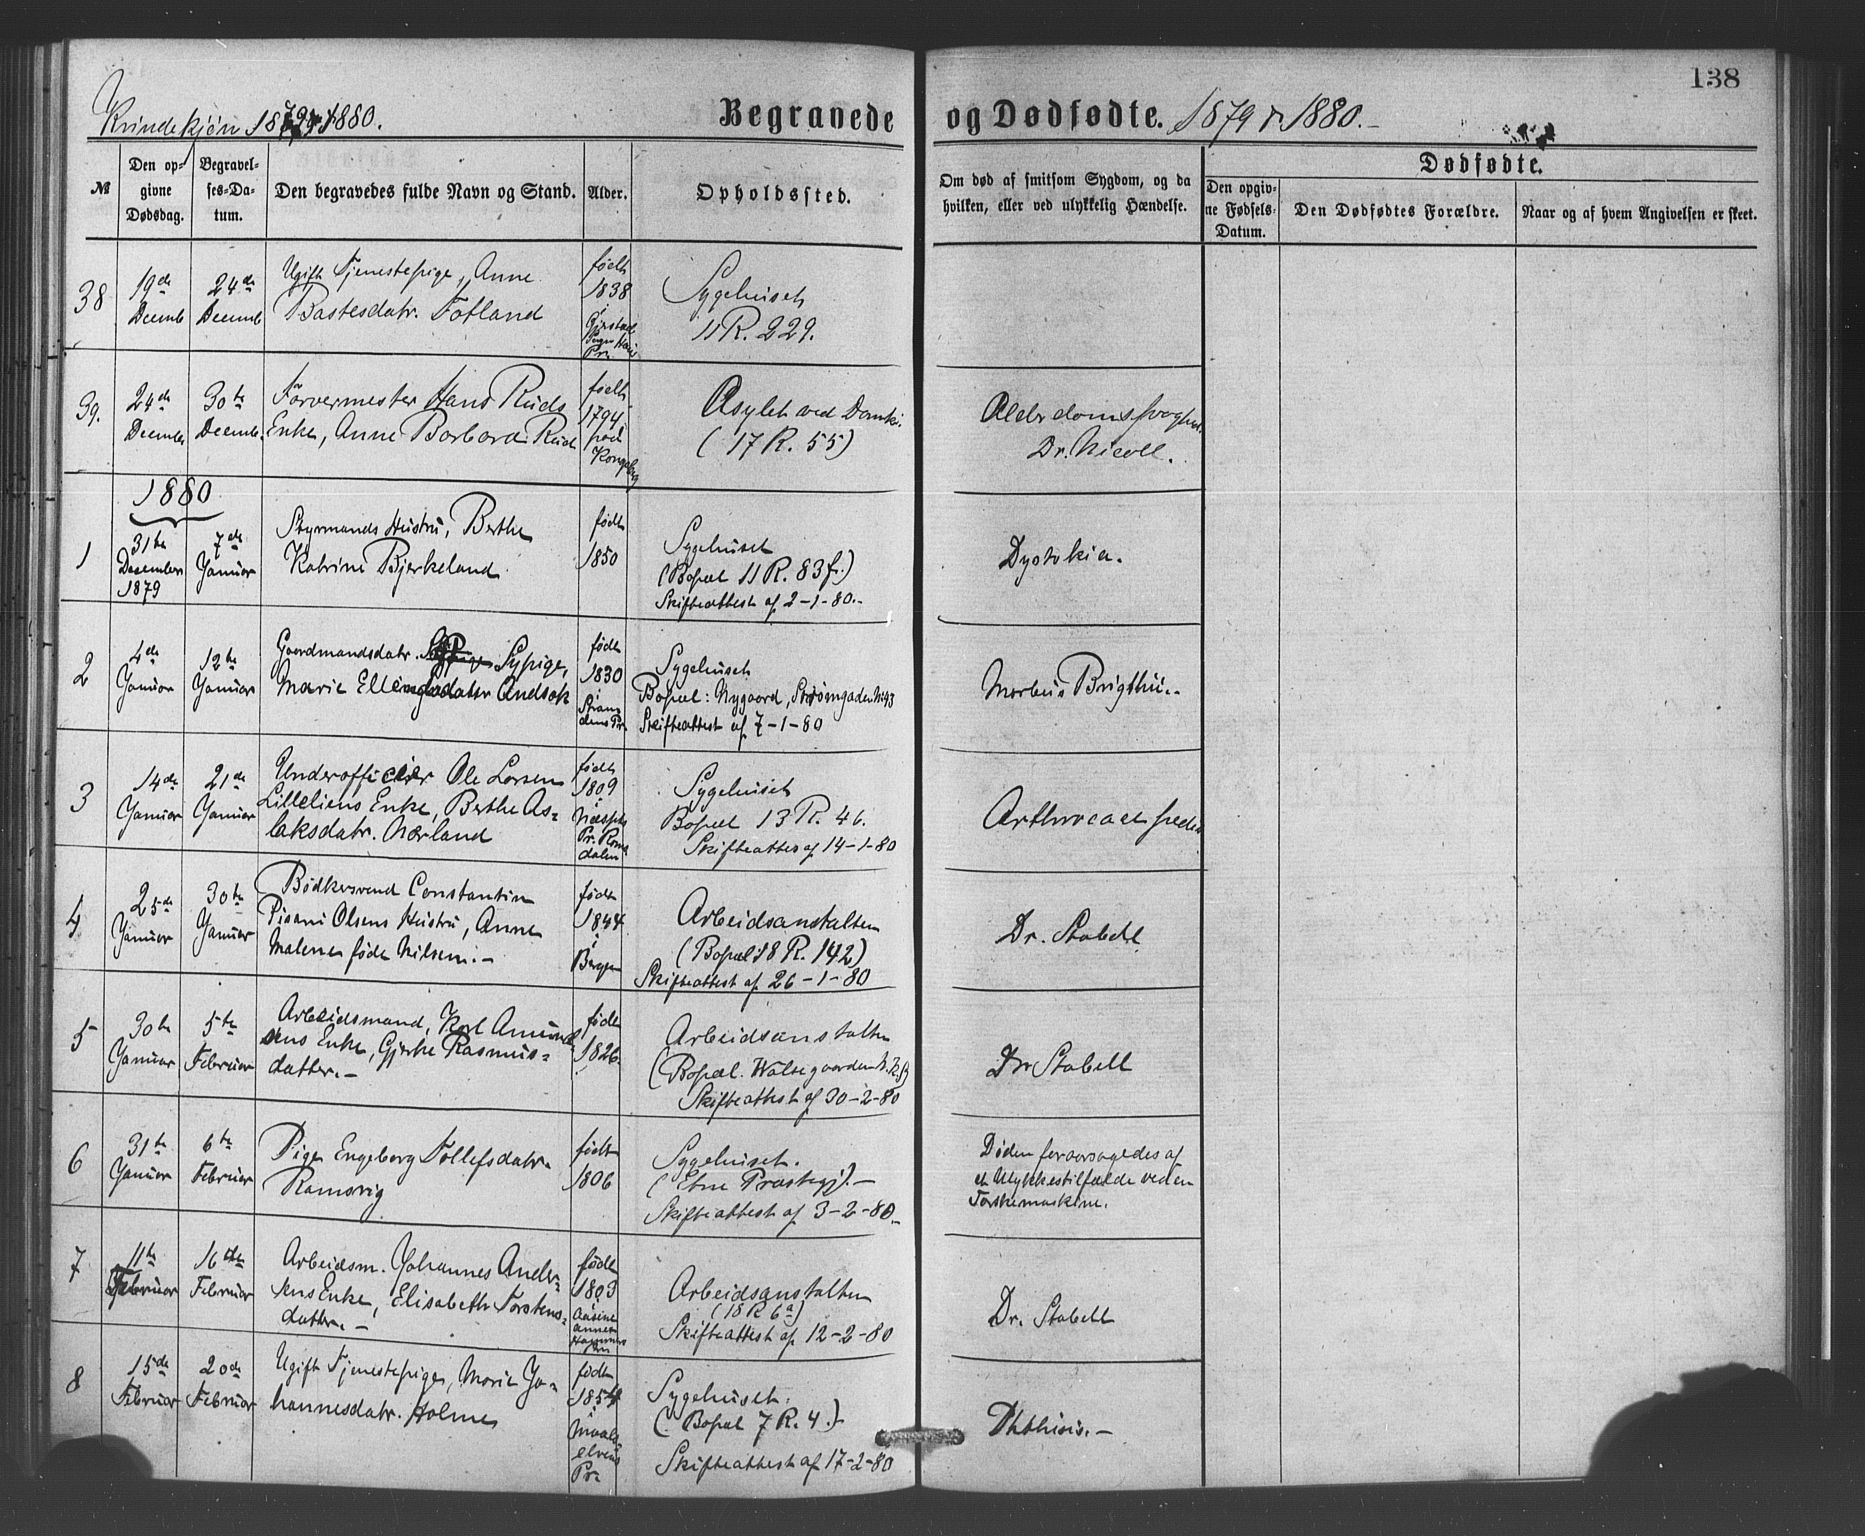 138
Kvindekjøn 1879 & 1880.
Begravede og Dødfødte. 1879 & 1880.
№
Den opgivne Dødsdag.
Begravelses-Datum.
Den begravedes fulde Navn og Stand.
Alder.
Opholdssted.
Om død af smitsom Sygdom, og da
hvilken, eller ved ulykkelig Hændelse.
Dødfødte.
Den opgivne Fødsels-Datum.
Den Dødfødtes Forældre.
Naar og af hvem Angivelsen er skeet.
38
19de
Decemb
24de
Decemb
Ugift Tjenestepige, Anne
Bastesdatr. Fotland
født
1838
i
Pr.
Sygehuset
11 R. 229.
39.
24de
Decembr
30te
Decemb.
Farvermester Hans Ruds
Enke, Anne Barbara Rud
født
1794
paa
Kongsberg
Asylet ved Domki.
(17 R. 55)
Alderdomssvaghed.
Dr. Nicoll.
1880
1
31te
December
1879
7de
Januar
Styrmands Hustru, Berthe
Katrine Bjerkeland
født
1850
Sygehuset
(Bopæl 11 R. 83 f.)
Skifteattest af 2-1-80.-
Dystokia.
2
4de
Januar
12te
Januar
Gaardmandsdatr. Sypige,
Marie Ellingsdatter Andsok
født
1830
i
Pr.
Sygehuset
Bopæl: Nygaard, Strømgaden № 43
Skifteattest af 7-1-80
Morbus Brigthii.-
3
14de
Januar
21de
Januar
Underofficier Ole Larsen
Lilleliens Enke, Berthe As-
laksdatr. Nærland
født
1809
i
Pr. Roms
dalen
Sygehuset
Bopæl 13 R. 46.
Skifteattes af 14-1-80
Arthrocace pedis
4
25de
Januar
30te
Januar
Bødkersvend Constantin
Pisani Olsens Hustru, Anne
Malene født Nilsen.-
født
1844
i
Bergen
Arbeidsanstalten
(Bopæl 18 R. 142)
Skifteattest af 26-1-80
Dr. Stabell
5
30te
Januar
5te
Februar
Arbeidsmand, Karl Amund-
sens Enke, Gjerte Rasmus-
datter.-
født
1826.
Arbeidsanstalten
(Bopæl. Walsegaarden
Skifteattest af 30-2-80
Dr Stabell
6
31te
Januar
6te
Februar
Pige Engeborg Tollefsdatr.
Ramsvig
født
1806
Sygehuset.
(Etne Præstegj).-
Skifteattest af 3-2-80.-
Døden foraarsagedes af
et Ulykkestilfælde ved en
Tærskemaskine.
7
11te
Februar
16de
Februar
Arbeidsm. Johannes Ander-
sens Enke, Elisabeth Torstens-
datter.-
født
1803
Arbeidsanstalten
(18 R 6a)
Skifteattest af 12-2-80
Dr. Stabell
8
15de
Februar
20de
Februar
Ugift Tjenestepige, Marie Jo-
hannesdatr. Holme
født
1854
i
Maals
elvens
Pr.
Sygehuset.
(Bopæl 7 R. 4.)
Skifteattest af 17-2-80
Phthisis.-